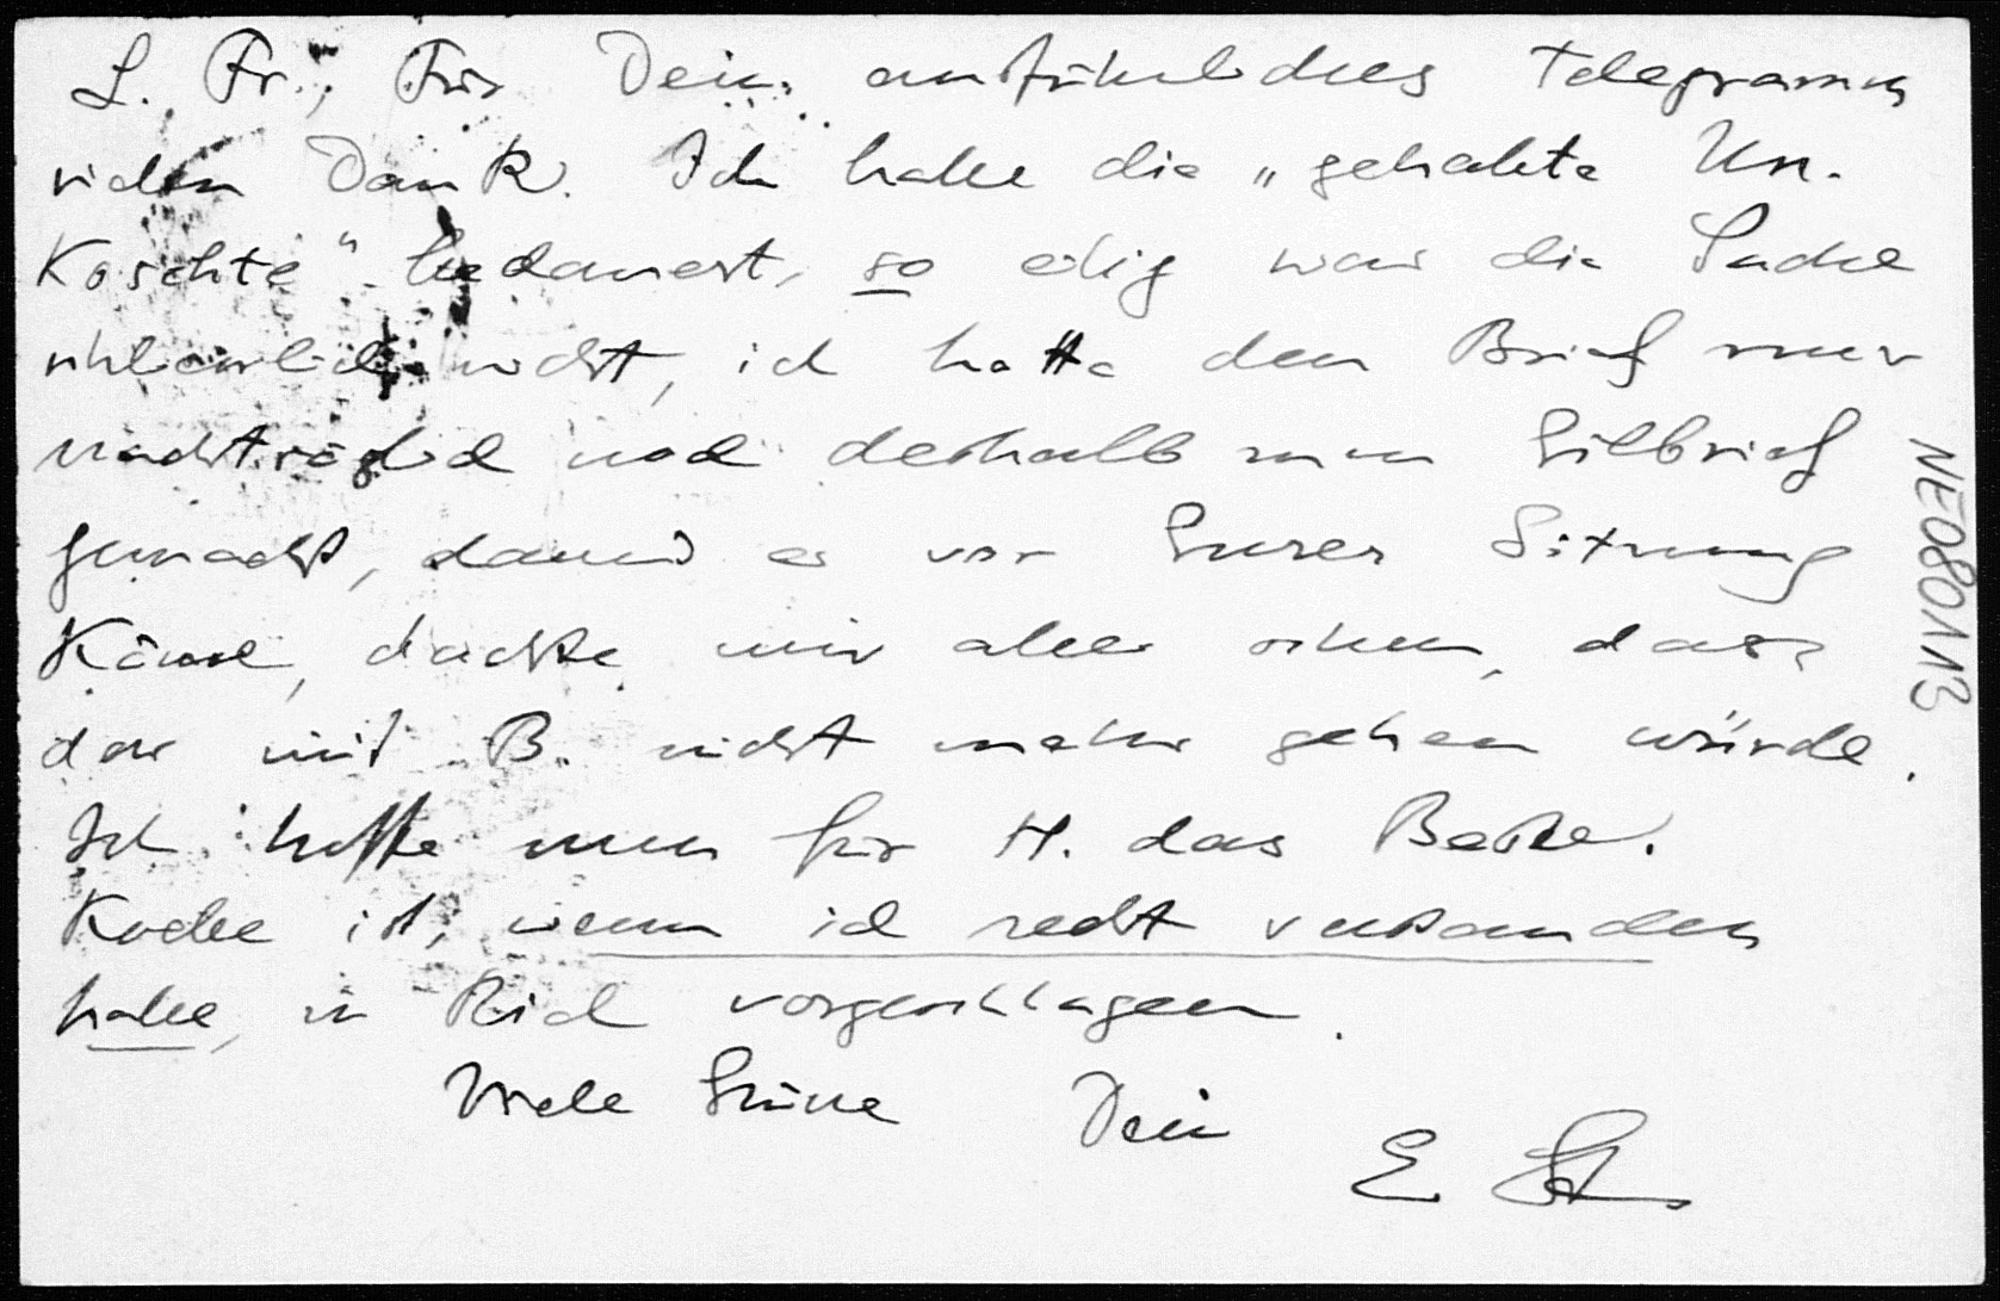 L. Fr., Für Dein ausführliches Telegramm
vielen Dank. Ich habe die „gehabte Un-
Koschte" bedauert, so eilig war die Sache
nicht, ich hatte den Brief nur
nachträglich und deshalb zum Eilbrief
gemacht, damit er vor Eurer Sitzung
Käme, dachte mir aber schon, dass
das mit B. nicht mehr gehen würde.
Ich hoffe nun für H. das Beste.
ist, wenn ich recht verstanden
habe, in Kiel vorgeschlagen.
Viele Grüsse Dein
E
NE080113